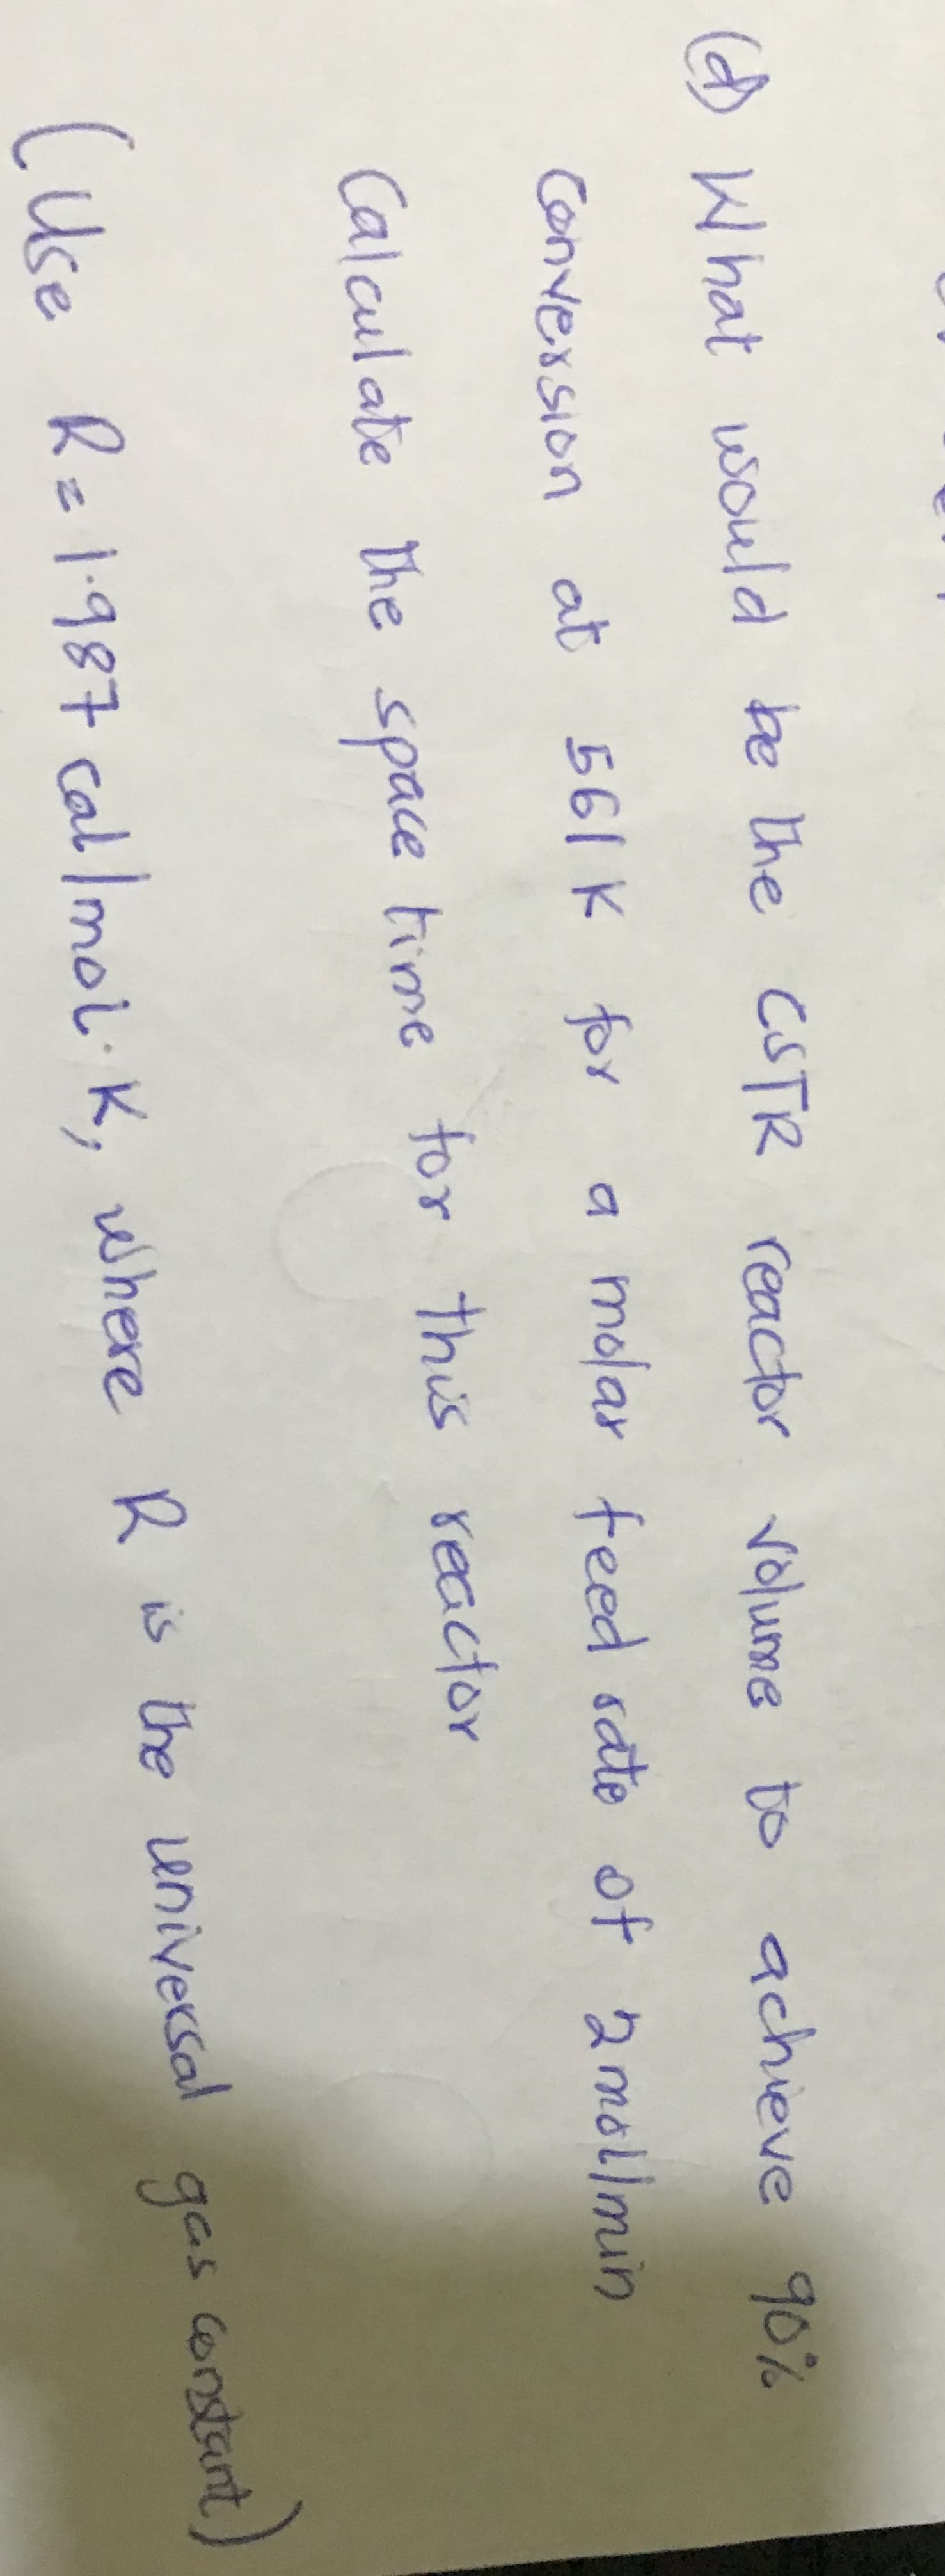 (d) What would be the CSTR reactor volume to achieve 90%
conversion at 561K for a molar feed rate of 2mol/min
Calculate the space time for this reactor
(Use R = 1.987 cal/mol.K, where R is the universal gas constant)